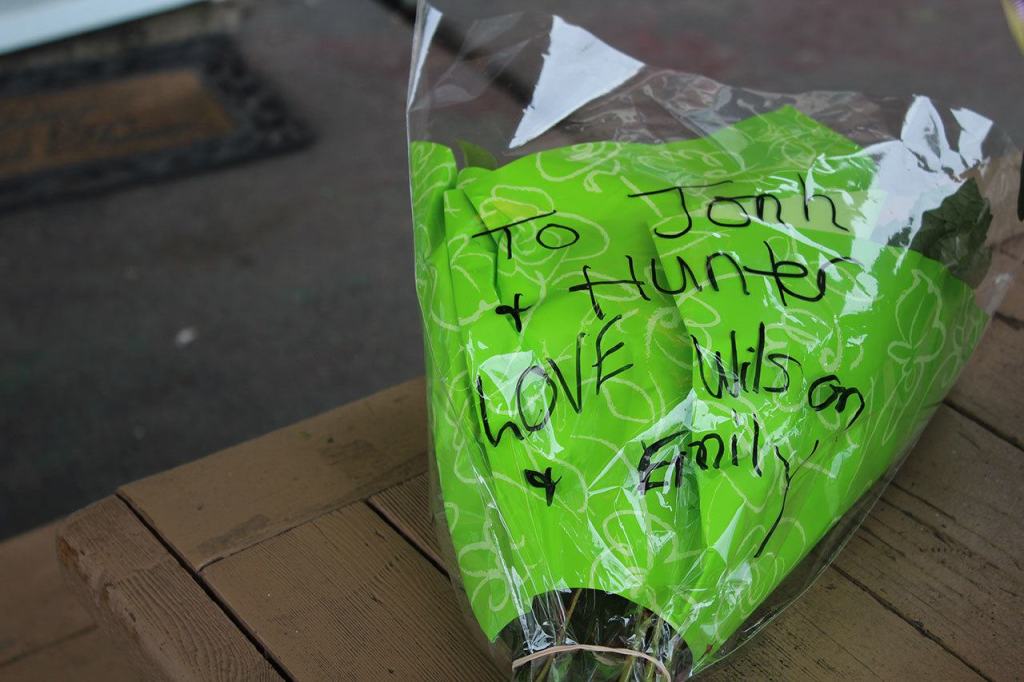 To Jonh
& Hunter
LOVE Wilson
& Emily